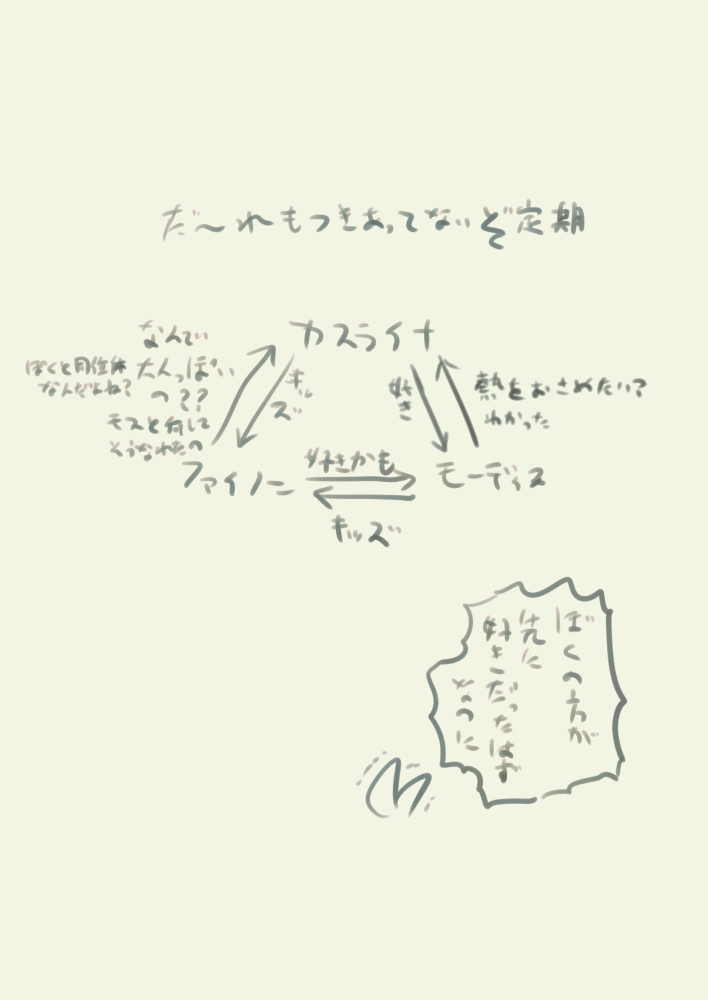 だ〜れもつきあってないぞ定期
カスライナ
なんでい
たんっぽい
の??
ぼくと同位体
なんだよね?
モスと何して
そうなれたの
キッズ
好き
熱をおさめたい?
わかった
ファイノン
好きかも
モーディス
キッズ
ぼくの方が
先に
好きだったはず
なのに